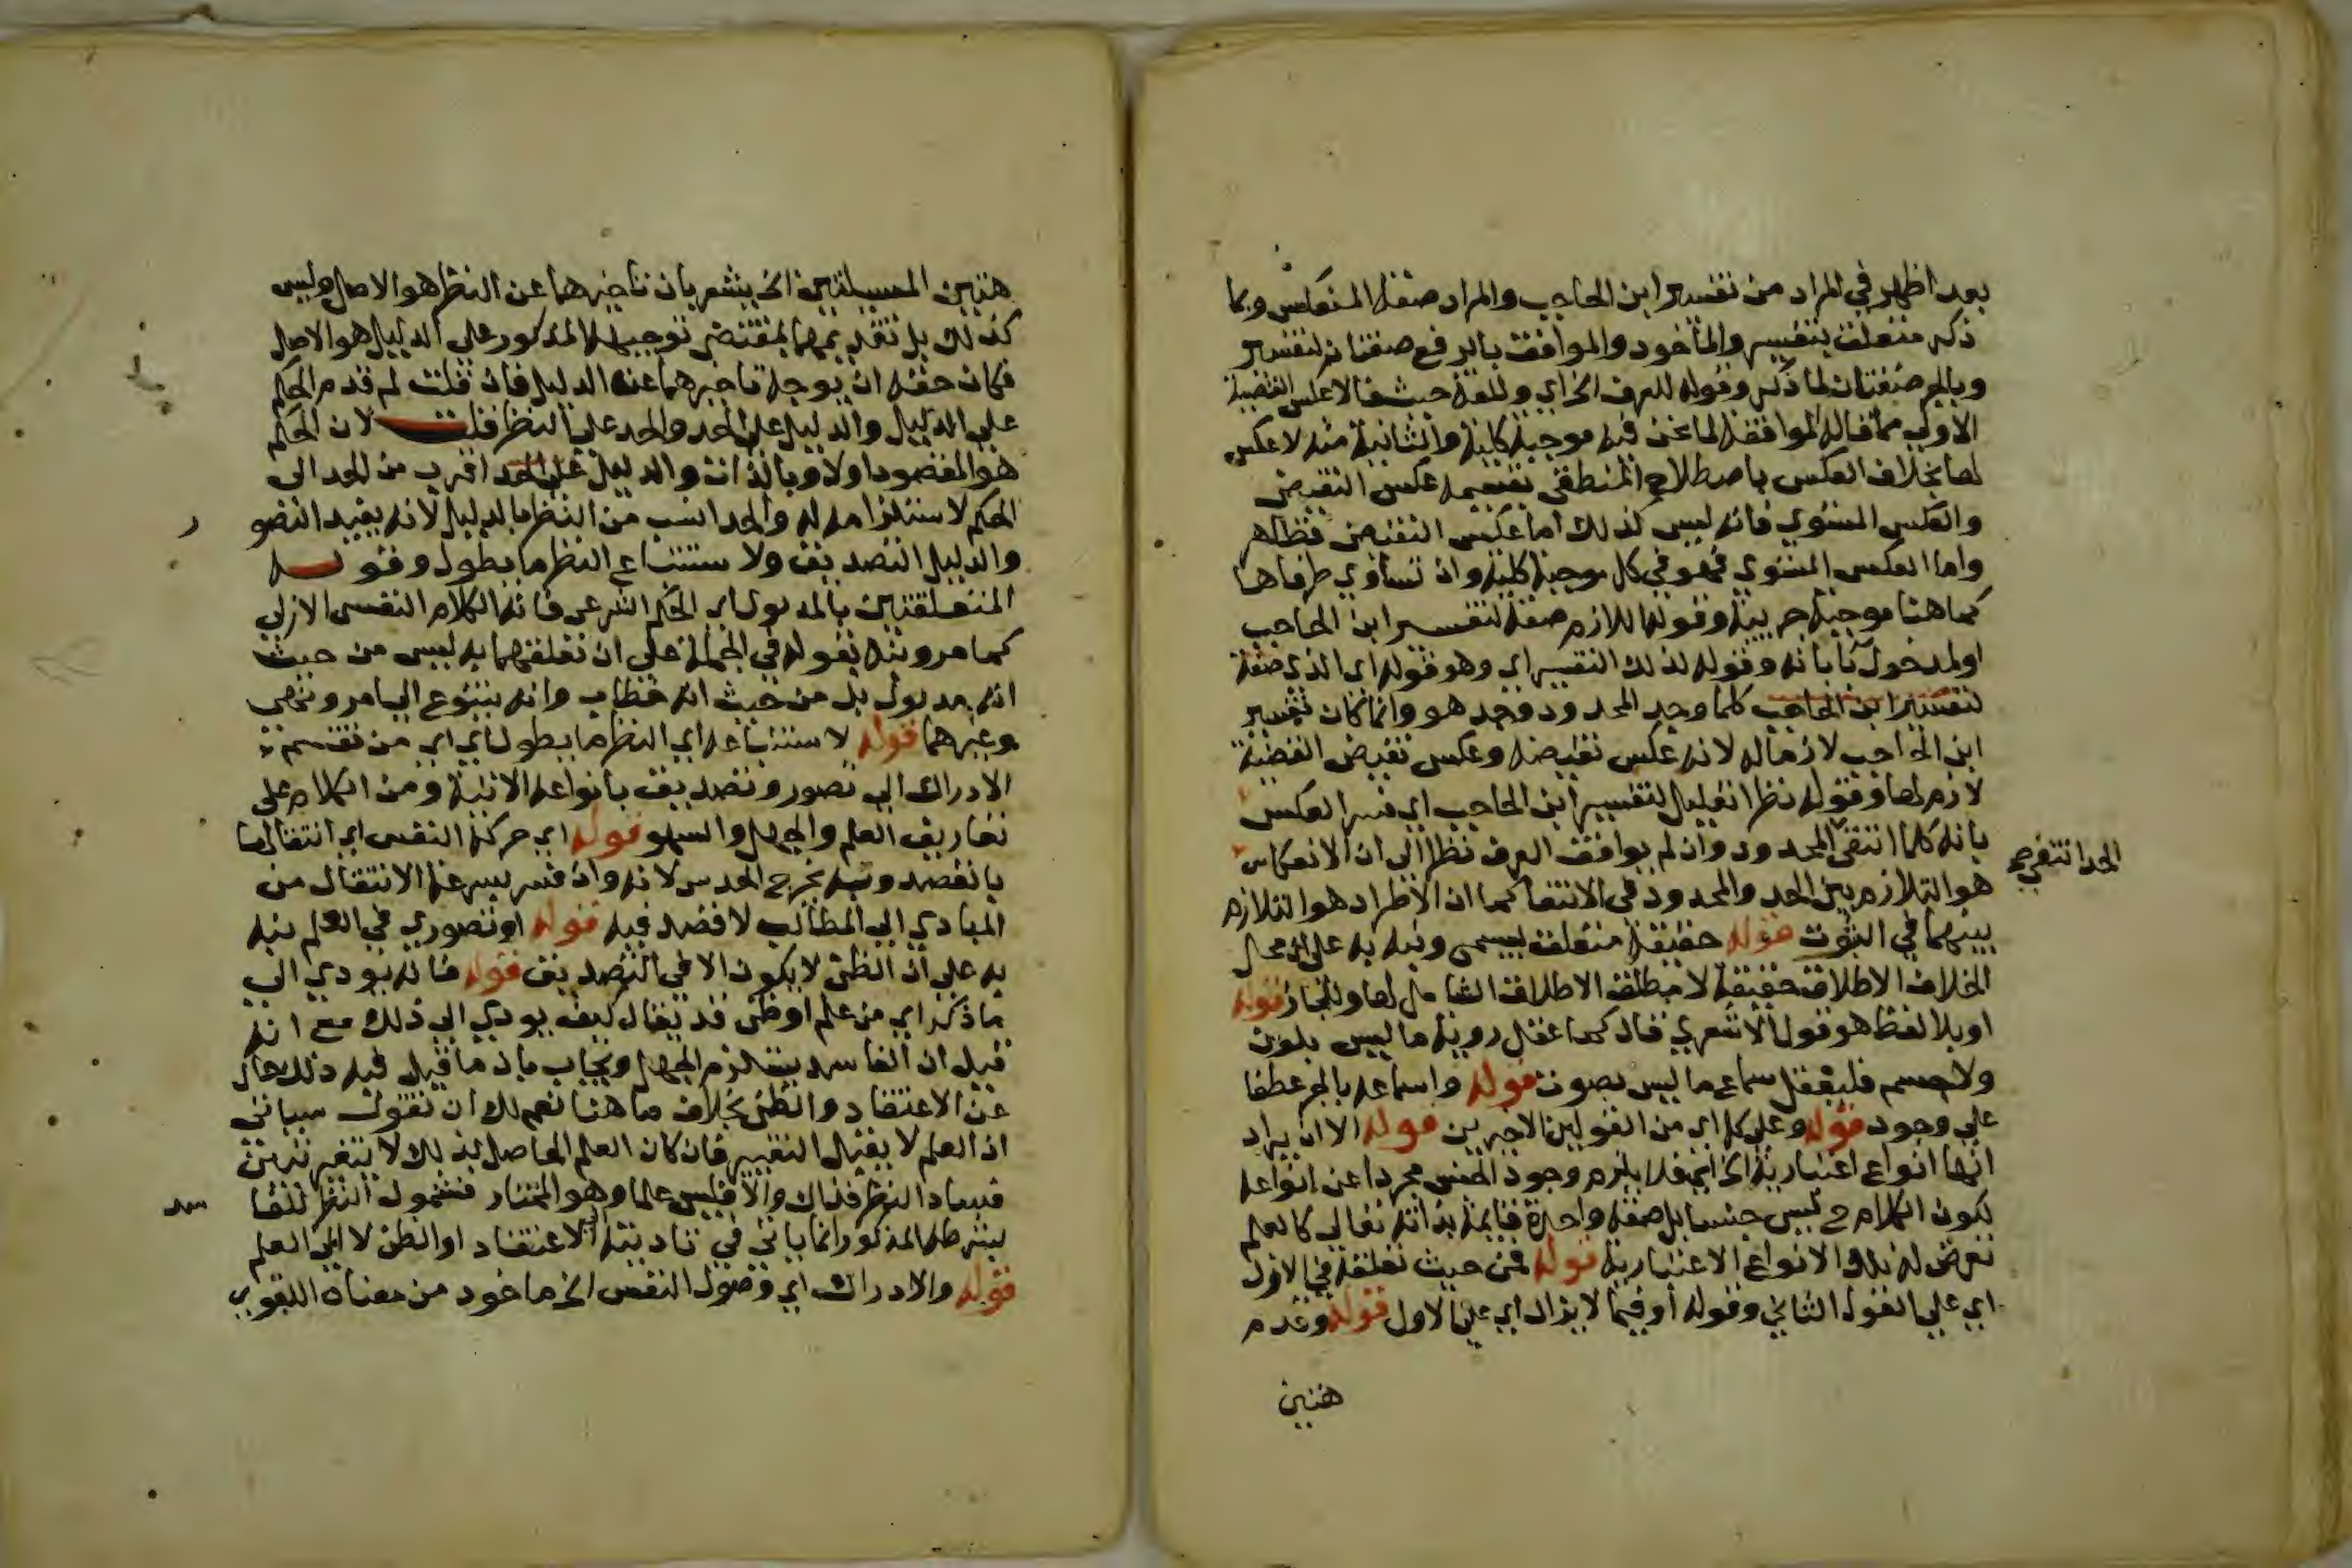 بعد اظهر في المراد من تفسير ابن الحاجب والمراد صفة المنعكس وبما
ذكر متعلق بتفسير والماخوذ والموافق بالرفع صفتان لتفسير
وبالجر صفتان لما ذكر وقوله للعرف الخ اي وللغة حيث الاعكس القضية
الاولى مما قاله الموافقة لما نحن فيه موجبة كلية والثانية منه لا عكس
لها بخلاف العكس باصطلاح المنطقي بقسيمه عكس النقيض
والعكس المستوي فانه ليس كذلك اما عكس النقيض فظاهر
واما العكس المستوي فهو في كل موجبة كلية وان تساوي طرفاها
كما هنا موجبة جزيية وقوله اللازم صفة لتفسير ابن الحاجب
اولمدخول بابانه وقوله لذلك التفسير اي وهو قوله اي الذي صفة
لتفسير ابن الحاجب كلما وجد المحدود وجد هو وانما كان تفسير
ابن الحاجب لازماله لانه عكس نقيضه وعكس نقيض القضية
لازم لها وقوله نظرا تعليل لتفسير ابن الحاجب اي فسر العكس
بانه كلما انتفي المحدود وان لم يوافق العرف نظرا الي ان الانعكاس
الحد انتفي صح
هو التلازم بين الحد والمحدود في الانتفا كما ان الاطراد هو التلازم
بينهما في الثبوت قوله حقيقة متعلق بيسمى ونبه به على ان محل
الخلاف الاطلاق حقيقة لا مطلق الاطلاق الشامل لها وللمجاز قوله
اوبلا لفظ هو قول الاشعري قال كما عقل روية ما ليس بلون
ولا جسم فليعقل سماع ما ليس بصوت قوله واسماعه بالجر عطفا
علي وجود قوله وعلى كل اي من القولين الاخيرين قوله الا ان يراد
انها انواع اعتبارية الخ اي فلا يلزم وجود الجنس مجردا عن انواعه
لكون الكلام ح ليس جنسا بل صفة واحدة قايمة بذاته تعالي كالعلم
تعرض له تلك الانواع الاعتبارية قوله فمن حيث تعلقه في الازل
اي علي القول الثاني وقوله أو فيما لا يزال اي علي الاول قوله وقدم
هتين
هتين المسيلتين الخ يشعر بان تاخيرهما عن النظر هو الاصل وليس
كذلك بل تقديمهما بمقتضى توجيهه المذكور على الدليل هو الاصل
فكان حقه ان يوجه تاخيرهما عن الدليل فان قلت لم قدم الحكم
علي الدليل والدليل علي الحد والحد علي النظر قلت لان الحكم
هو المقصود اولا وبالذات والدليل علي الحد اقرب من الحد الى
الحكم لاستلزامه له والحد انسب من النظر بالدليل لانه يفيد التصو
ر
والدليل التصديق ولاستتباع النظر ما يطول وقوله
المتعلقتين بالمدلول اي الحكم الشرعي فانه الكلام النفسي الازلي
كما مر ونبه بقوله في الجملة علي ان تعلقهما به ليس من حيث
انه مدلول بل من حيث انه خطاب وانه يتنوع الي امر ونهي
وغيرهما قوله لاستتباعه اي النظر ما يطول اي من تقسيم
الادراك الي تصور وتصديق بانواعه الاتية ومن الكلام على
تعاريف العلم والجهل والسهو قوله اي حركة النفس اي انتقالها
بالقصد وبه يخرج الحدس لانه وان فسر بسرعة الانتقال من
المبادي الي المطالب لا قصد فيه قوله او تصوري في العلم نبه
به علي ان الظن لا يكون الا في التصديق قوله فانه يودي الي
ما ذكر اي من علم او ظن قد يقال كيف يودي الي ذلك مع انه
قيل ان الفاسد يستلزم الجهل ويجاب بان ما قيل فيه ذلك خال
عن الاعتقاد والظن بخلاف ما هنا نعم لك ان تقول سياتى
ان العلم لا يقبل التغيير فان كان العلم الحاصل بذلك لا يتغير بتبين
فساد النظر فذاك والا فليس علما وهو المختار فشمول النظر للفا
سد
بشرطه المذكور انما ياتي في تاديته الي الاعتقاد او الظن لا الي العلم
قوله والادراك اي وصول النفس الخ ماخوذ من معناه اللغوي